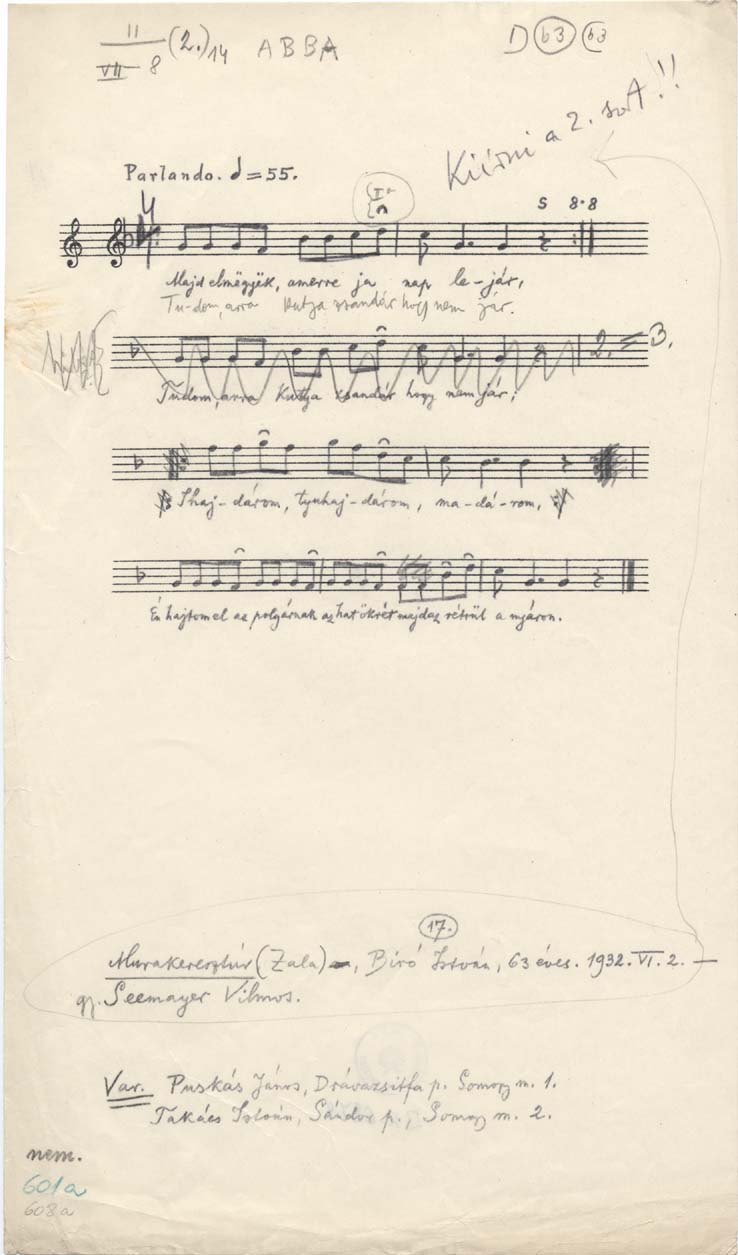 II
VII 8 (2.) 14 ABBA D b3 b3
Kiírni a 2. sort!!
Parlando. = 55.
S 8.8
Majd elmëgyëk, amerre ja nap le-jár,
Tu-dom, arra kutya zsandár hogy nem jár.
2. = 3.
Tudom, arra Kutya zsandár hogy nem jár;
Ihaj-dárom, tyuhaj-dárom, ma-dá-rom,
Én hajtom el az polgárnak az hat ökrét majd az rétrül a nyáron.
17.
Murakeresztúr (Zala), Bíró István, 63 éves. 1932. VI. 2. —
gy. Seemayer Vilmos.
Var. Puskás János, Drávazsitfa p. Somogy m. 1.
Takács István, Sándor p., Somogy m. 2.
nem.
601a
608a